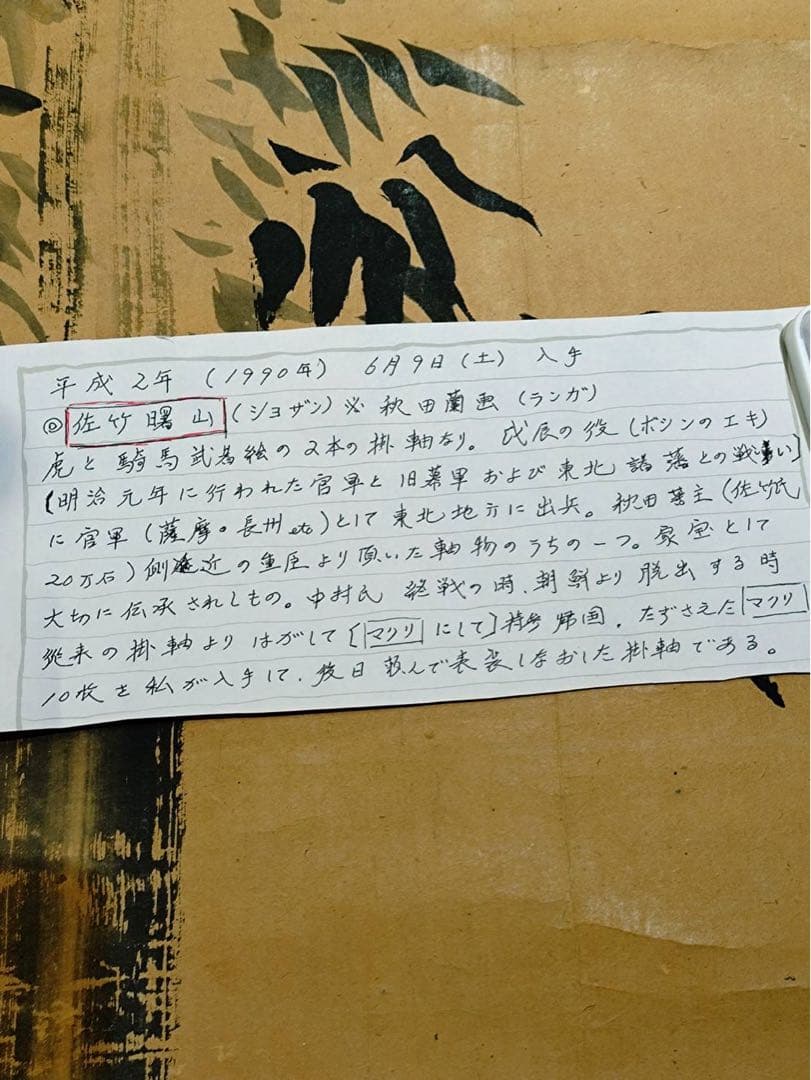 平成2年 (1990年) 6月9日(土) 入手
◎佐竹曙山(ショザン)※秋田蘭画(ランガ)
虎と騎馬武者絵の2本の掛軸なり。戊辰の役(ボシンのエキ)
(明治元年に行われた官軍と旧幕軍および東北諸藩との戦い)
に官軍(薩摩・長州etc)として東北地方に出兵。秋田藩主(佐竹氏
20万石)側近の重臣より頂いた軸物のうちの一つ。家宝として
大切に伝承されしもの。中村氏 終戦の時、朝鮮より脱出する時
従来の掛軸よりはがして[マクリにして]持参帰国。たずさえたマクリ
10枚を私が入手して、後日頼んで表装しなおした掛軸である。